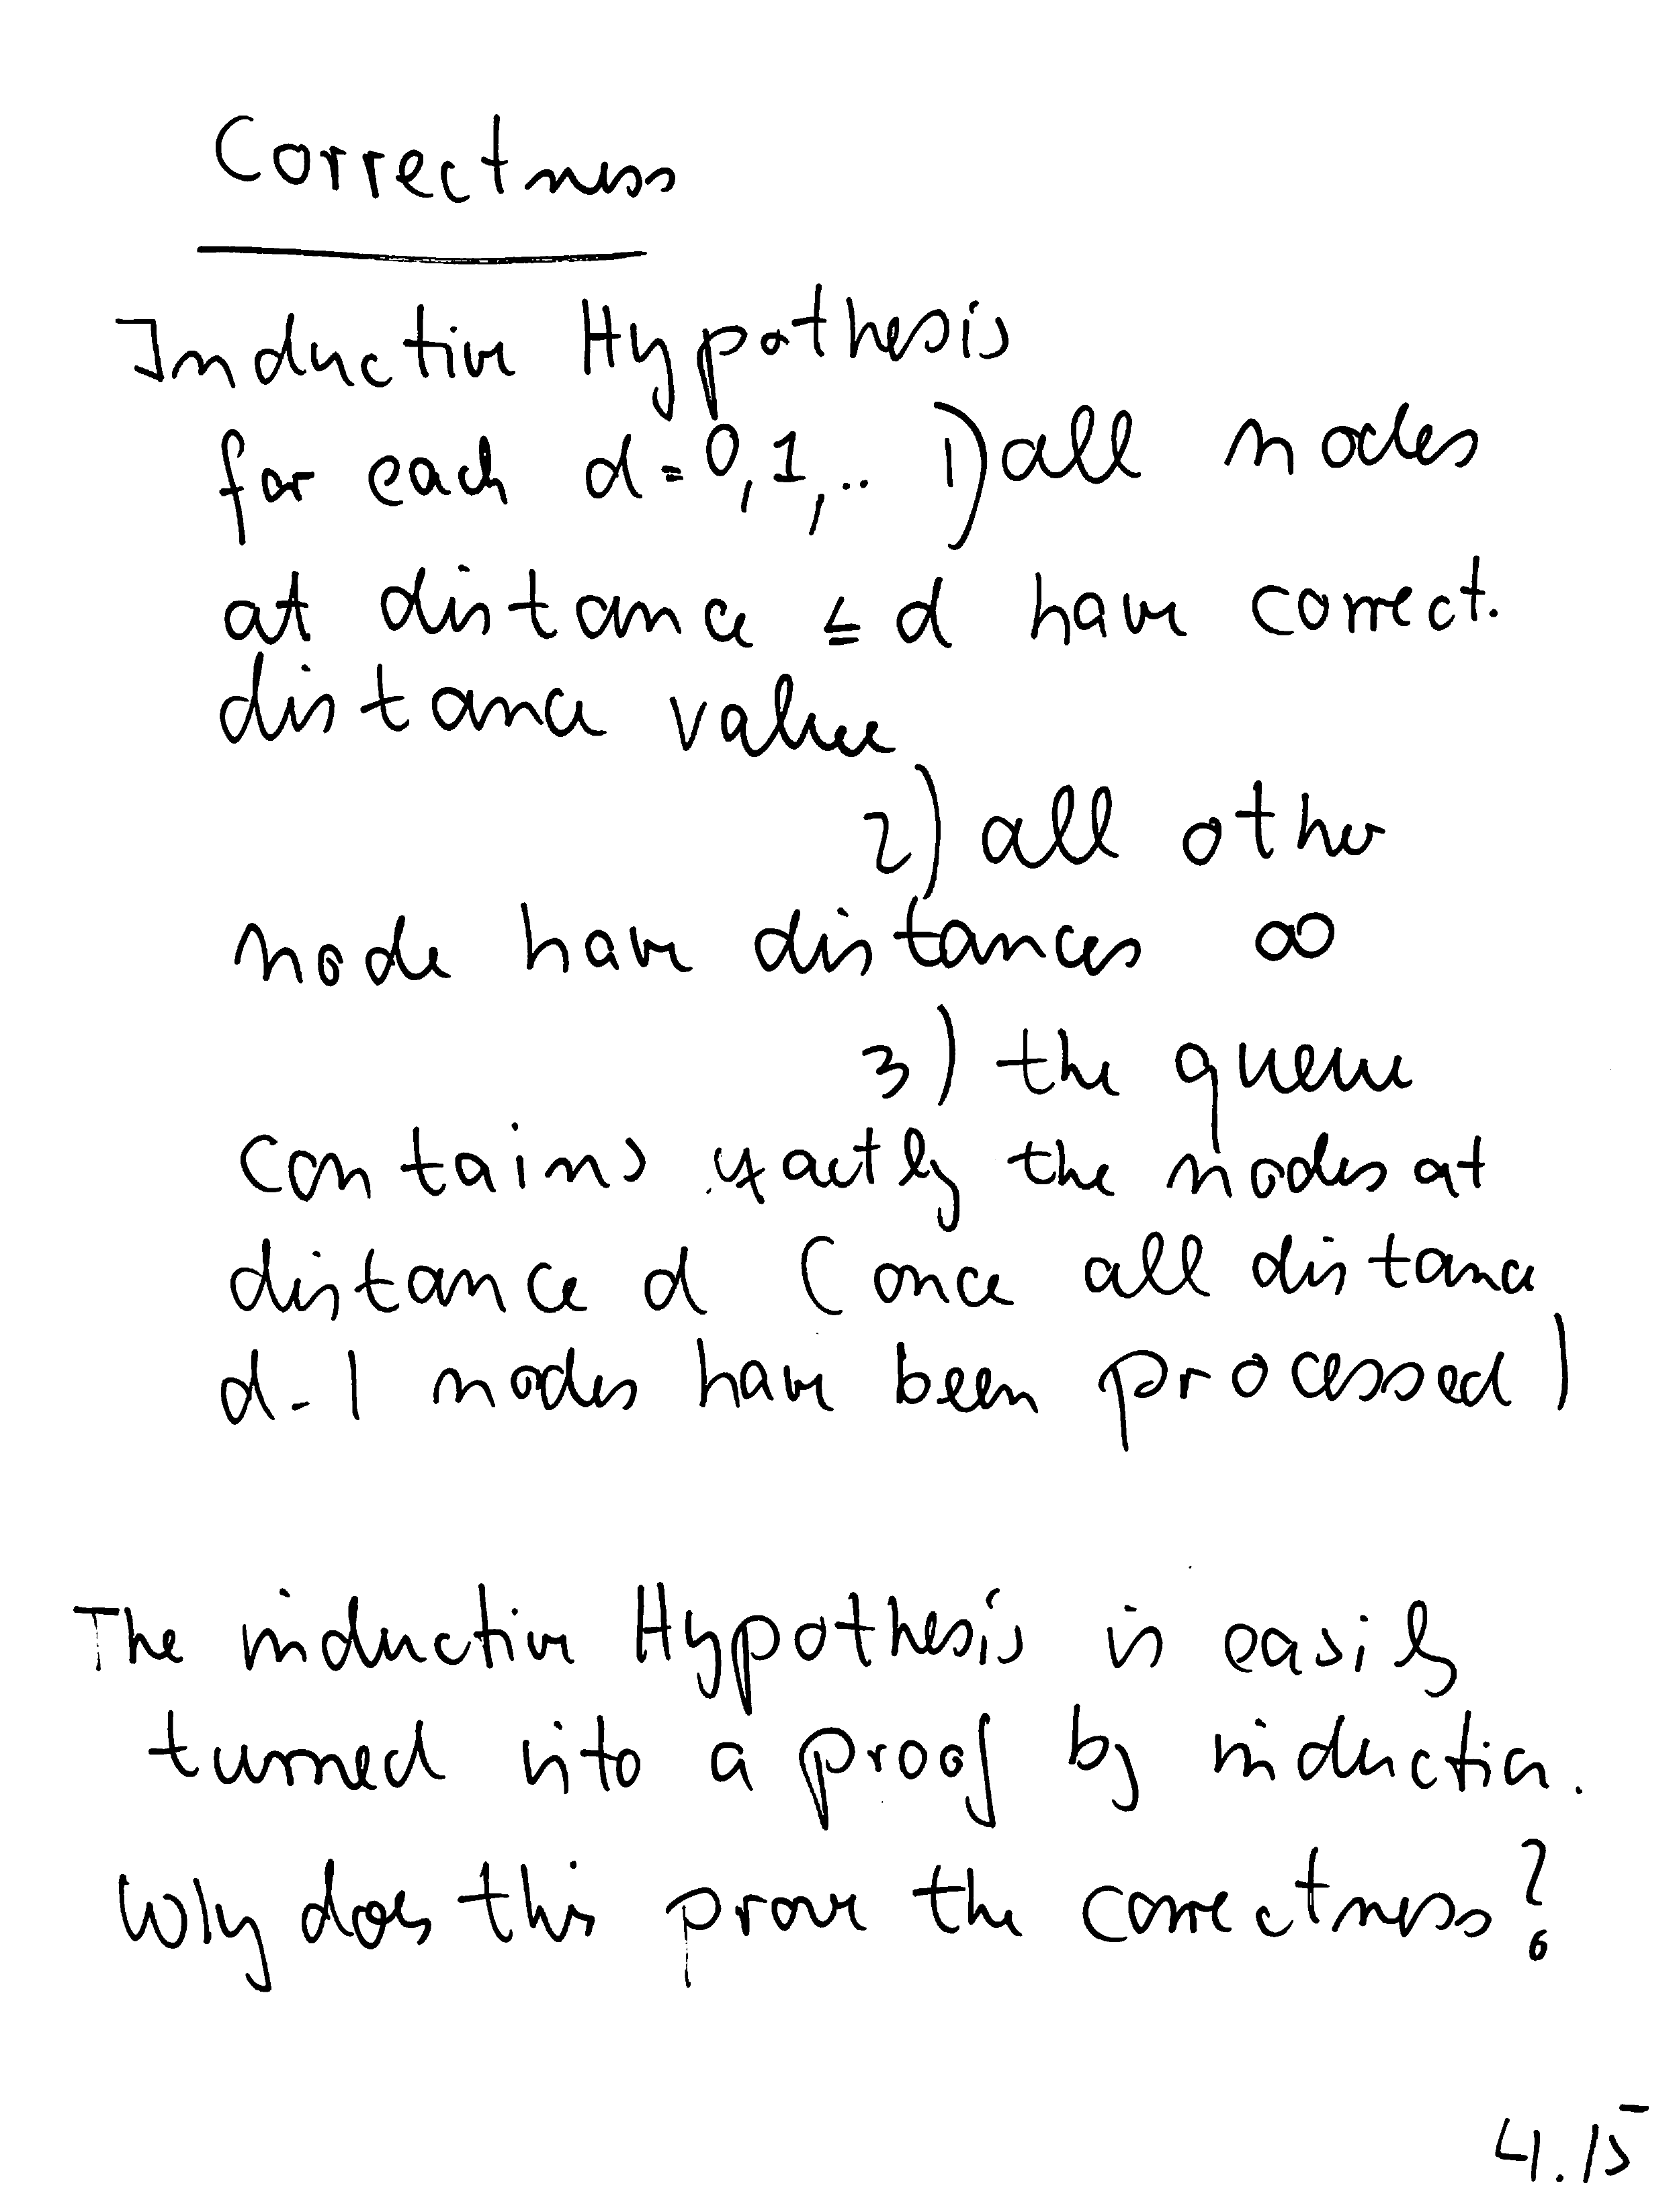 Correctness
Inductive Hypothesis
for each d=0,1,.. 1) all nodes
at distance ≤ d have correct.
distance value
2) all other
node have distances ∞
3) the queue
contains exactly the nodes at
distance d (once all distance
d-1 nodes have been processed)
The inductive Hypothesis is easily
turned into a proof by induction.
Why does this prove the correctness?
4.15